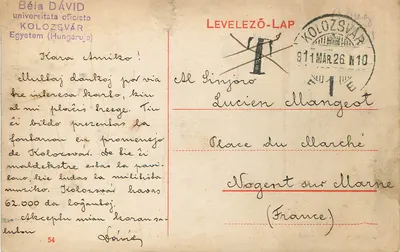 Béla DÁVID
universitata oficisto
KOLOZSVÁR
Egyetem (Hungarujo)
LEVELEZŐ-LAP
T
KOLOZSVÁR
911 MÁR. 26. N 10
1
Kara Amiko!
Multajn dankojn pro via
tre interesa karto, kiu
al mi plaĉis treege. Tiu
ĉi bildo prezentas la
fontanon en promenejo
de Kolozsvár. De tie ĉi
maldekstre estas la pavi-
lono, kie ludas la militista
muziko. Kolozsvár havas
62.000 da loĝantoj.
Akceptu mian koran sa-
luton
Dávid
Al Sinjoro
Lucien Mangeot
Place du Marché
Nogent sur Marne
(France)
54